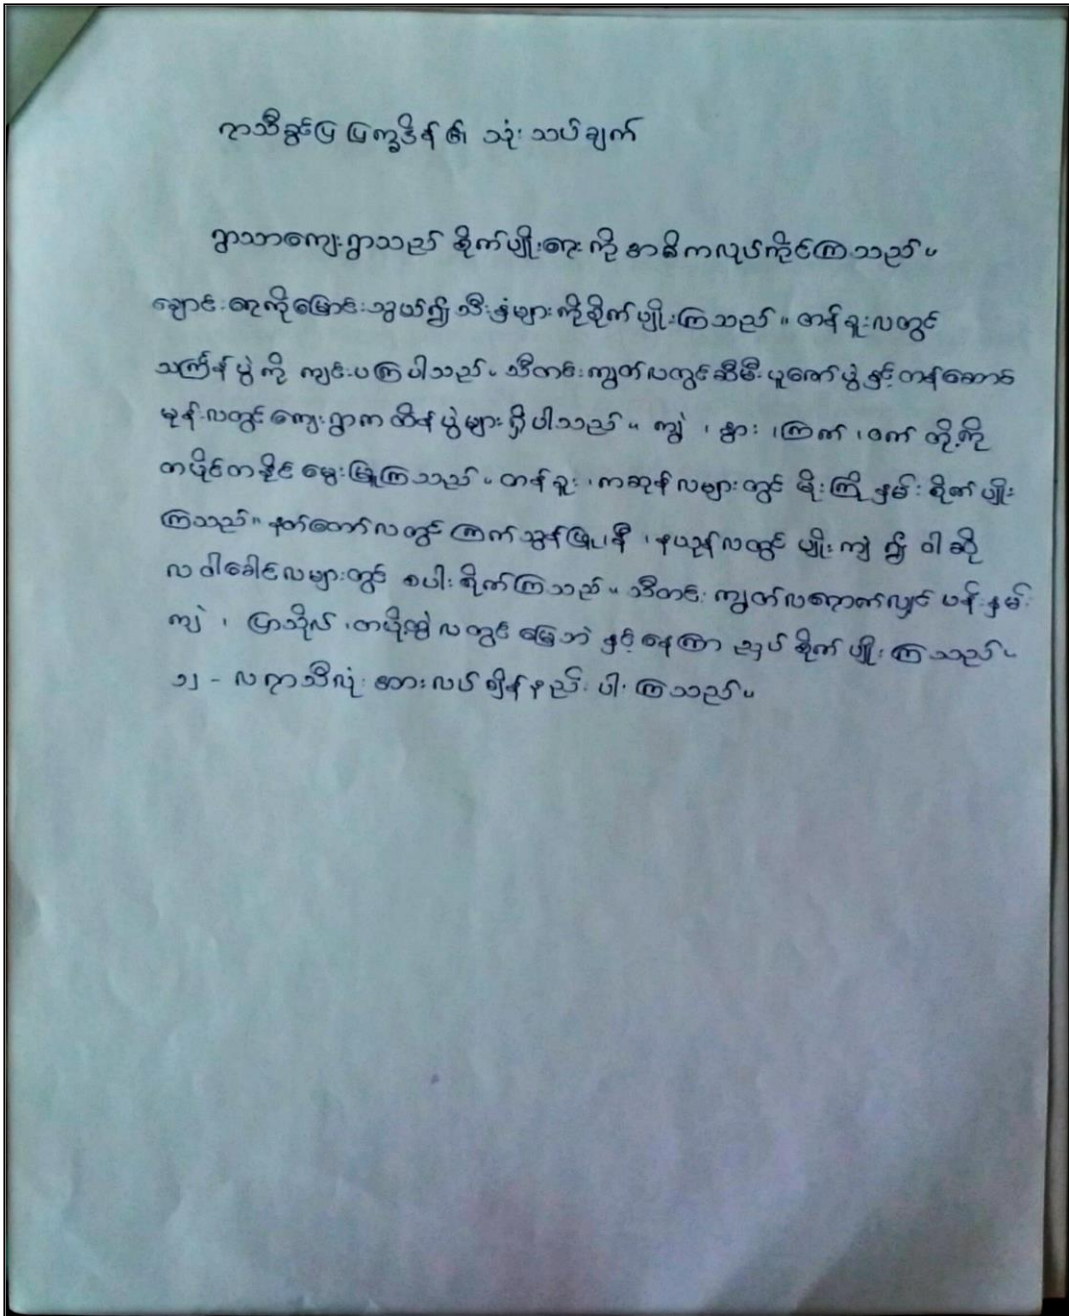 ရာသီခွင်ပြ ပြက္ခဒိန်၏ သုံးသပ်ချက်
ရွာသာကျေးရွာသည် စိုက်ပျိုးရေးကို အဓိကလုပ်ကိုင်ကြသည်။
ချောင်းရေကိုမြောင်းသွယ်၍ သီးနှံများကိုစိုက်ပျိုးကြသည်။ တန်ခူးလတွင်
သင်္ကြန်ပွဲကို ကျင်းပကြပါသည်။ သီတင်းကျွတ်လတွင်ဆီမီးပူဇော်ပွဲနှင့် တန်ဆောင်
မုန်းလတွင်ကျေးရွာကထိန်ပွဲများရှိပါသည်။ ကျွဲ ၊ နွား ၊ ကြက် ၊ ဝက် တို့ကို
တပိုင်တနိုင်မွေးမြူကြသည်။ တန်ခူး ၊ ကဆုန်လများတွင် မိုးကြိုနှမ်းစိုက်ပျိုး
ကြသည်။ နတ်တော်လတွင် ကြက်သွန်ဖြူ၊နီ ၊ နယုန်လတွင် ပျိုးကျဲ၍ ဝါဆို
လဝါခေါင်လများတွင် စပါးစိုက်ကြသည်။ သီတင်းကျွတ်လရောက်လျှင် ပန်နှမ်း
ကျဲ ၊ ပြာသိုလ် ၊ တပို့တွဲလတွင် မြေဘဲနှင့်နေကြာ ညှပ်စိုက်ပျိုးကြသည်။
၁၂ - လရာသီလုံး အားလပ်ချိန်နည်းပါးကြသည်။